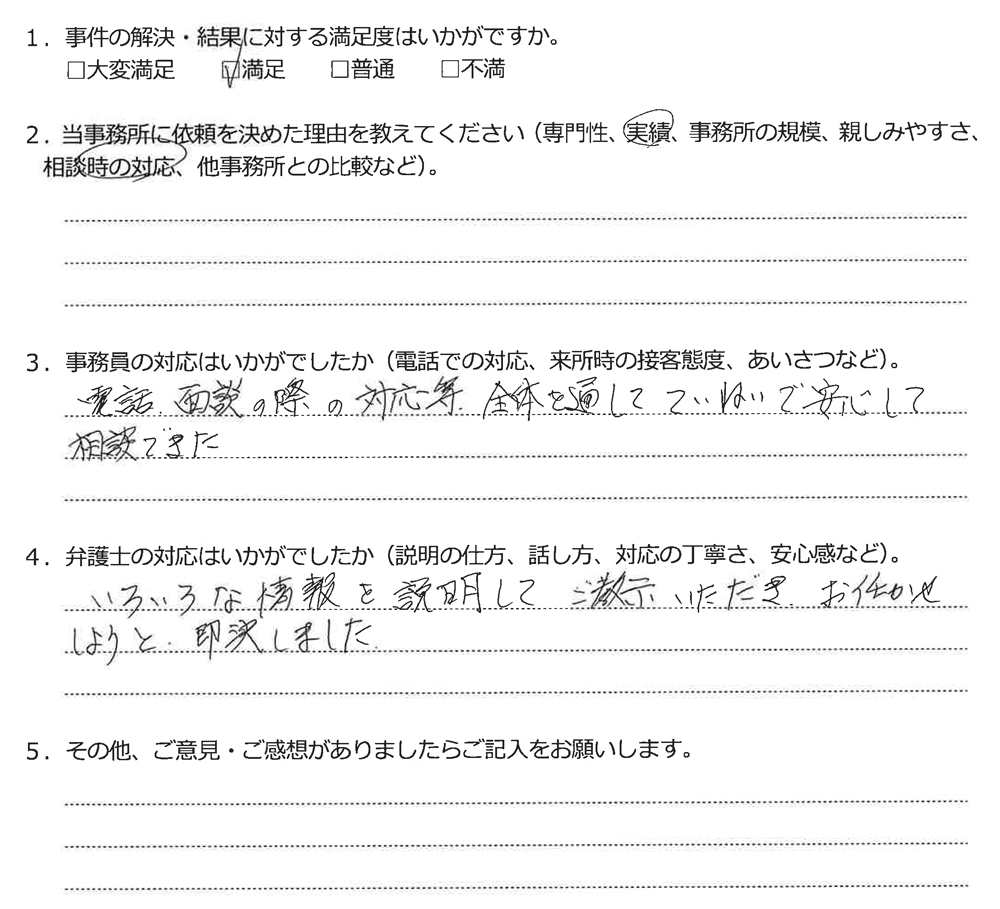 1．事件の解決・結果に対する満足度はいかがですか。
□大変満足　☑満足　□普通　□不満
2．当事務所に依頼を決めた理由を教えてください（専門性、実績、事務所の規模、親しみやすさ、
相談時の対応、他事務所との比較など）。
3．事務員の対応はいかがでしたか（電話での対応、来所時の接客態度、あいさつなど）。
電話、面談の際の対応等、全体を通してていねいで安心して
相談できた
4．弁護士の対応はいかがでしたか（説明の仕方、話し方、対応の丁寧さ、安心感など）。
いろいろな情報を説明して ご教示いただき、お任かせ
しようと、即決しました。
5．その他、ご意見・ご感想がありましたらご記入をお願いします。